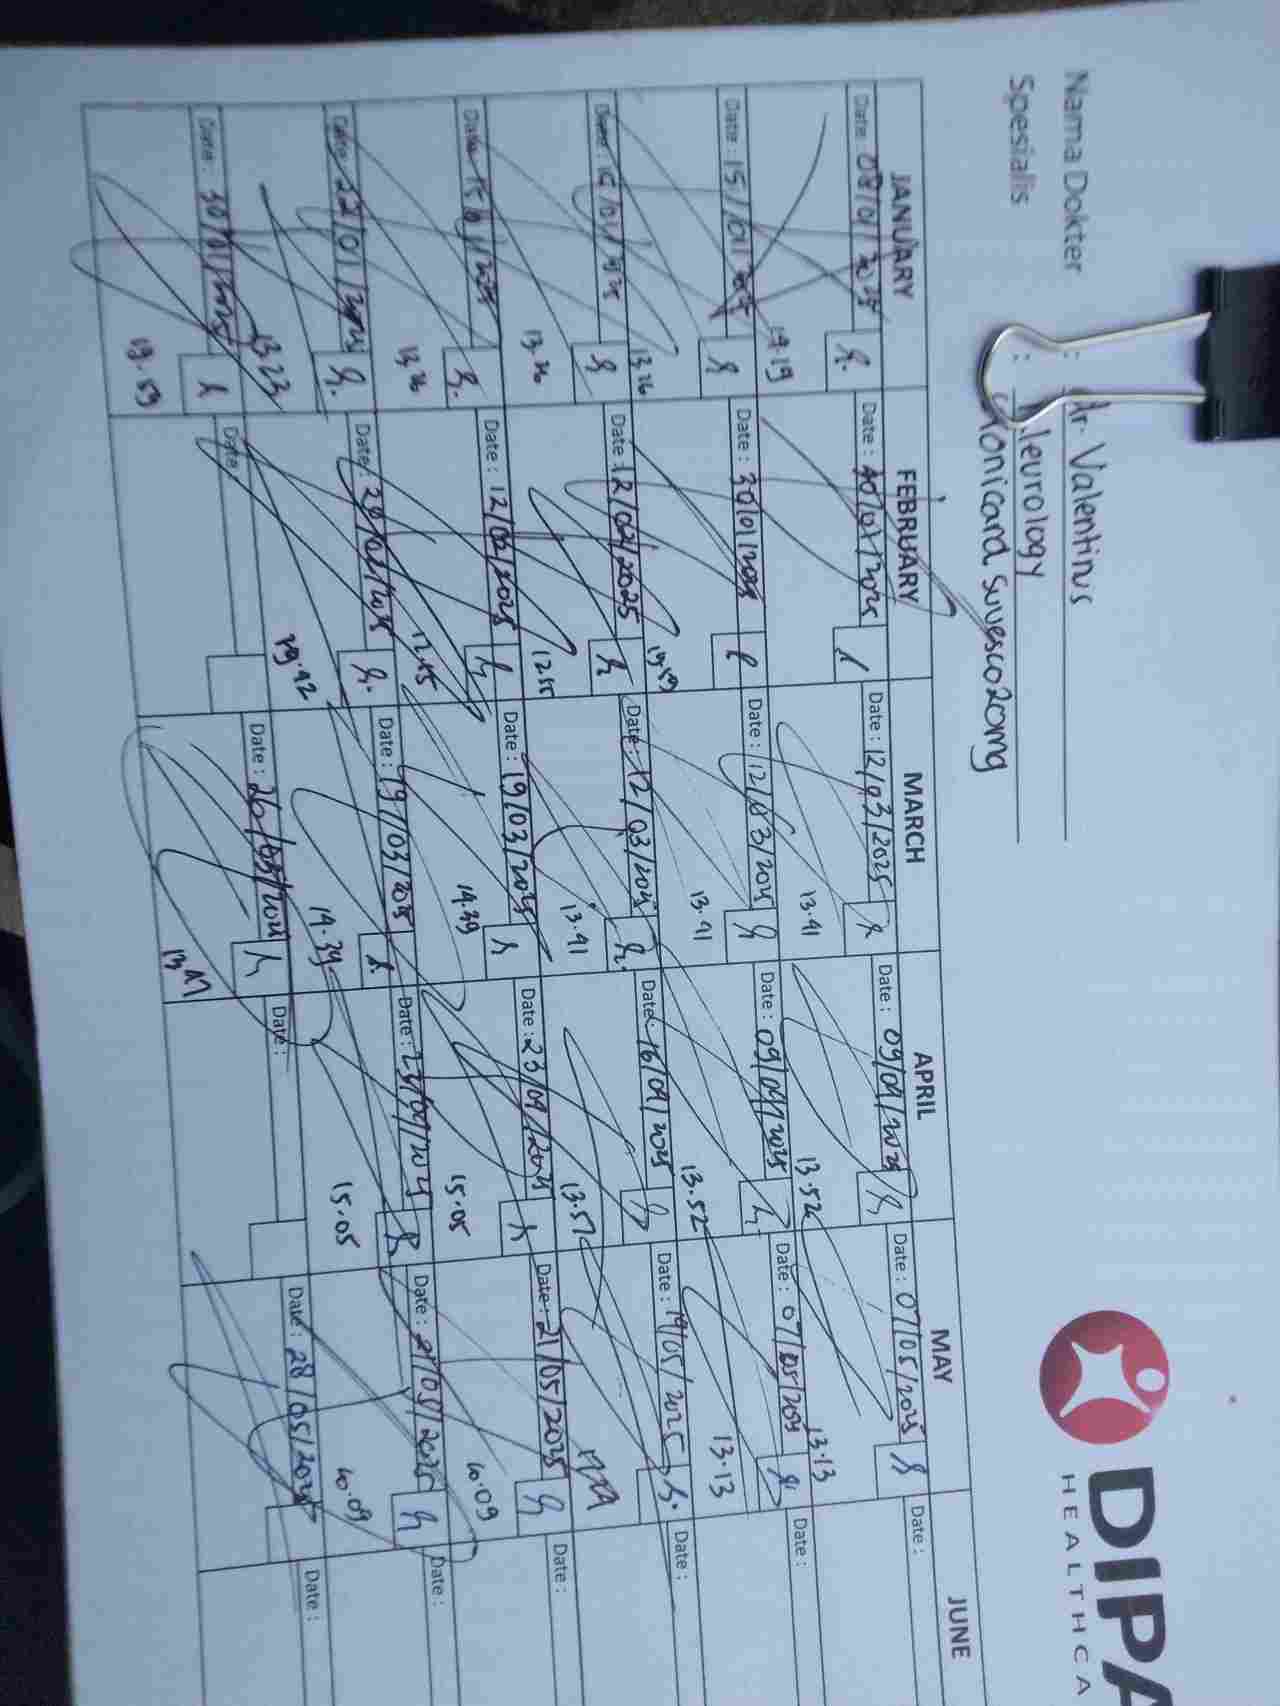 DIPA
HEALTHCA
Nama Dokter : dr. Valentinus
Spesialis : Neurology
Monicard Suvesco 20mg
JANUARY FEBRUARY MARCH APRIL MAY JUNE
Date: 08/01/2025 Date: Date: 12/03/2025 Date: 09/04/2025 Date: 07/05/2025 Date:
14.19 13.41 13.52 13.13
Date: 15/01/2025 Date: 30/01/2025 Date: 12/03/2025 Date: 09/04/2025 Date: 07/05/2025 Date:
13.26 19.59 13.41 13.52 13.13
Date: 15/01/2025 Date: 12/02/2025 Date: 12/03/2025 Date: 16/04/2025 Date: 14/05/2025 Date:
13.26 12.55 13.41 13.51
Date: 15/01/2025 Date: 12/02/2025 Date: 19/03/2025 Date: 23/04/2025 Date: 21/05/2025 Date:
13.26 12.55 14.39 15.05 10.09
Date: 22/01/2025 Date: Date: 19/03/2025 Date: 23/04/2025 Date: 21/05/2025 Date:
13.23 19.42 14.39 15.05 10.09
Date: 30/01/2025 Date: Date: 26/03/2025 Date: Date: 28/05/2025 Date:
19.59